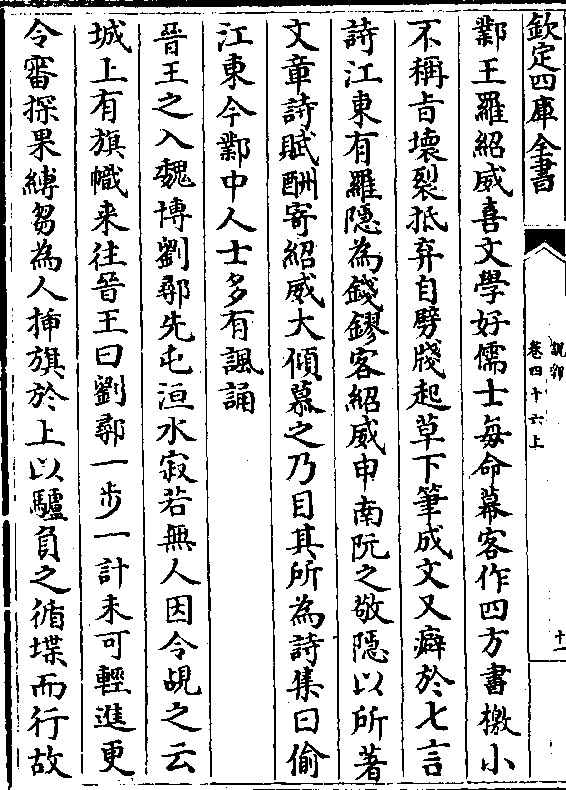 欽定四庫全書
說郛
卷四十六上
十一
鄴王羅紹威喜文學好儒士每命幕客作四方書檄小
不稱㫖壊裂抵弃自劈牋起草下筆成文又癖於七言
詩江東有羅隱為錢鏐客紹威申南阮之敬隱以所著
文章詩賦酬寄紹威大傾慕之乃目其所為詩集曰偷
江東今鄴中人士多有諷誦
晉王之入魏博劉鄩先屯洹水寂若無人因令覘之云
城上有旗幟来往晉王曰劉鄩一步一計未可輕進更
令審探果縛芻為人挿旗於上以驢負之循堞而行故